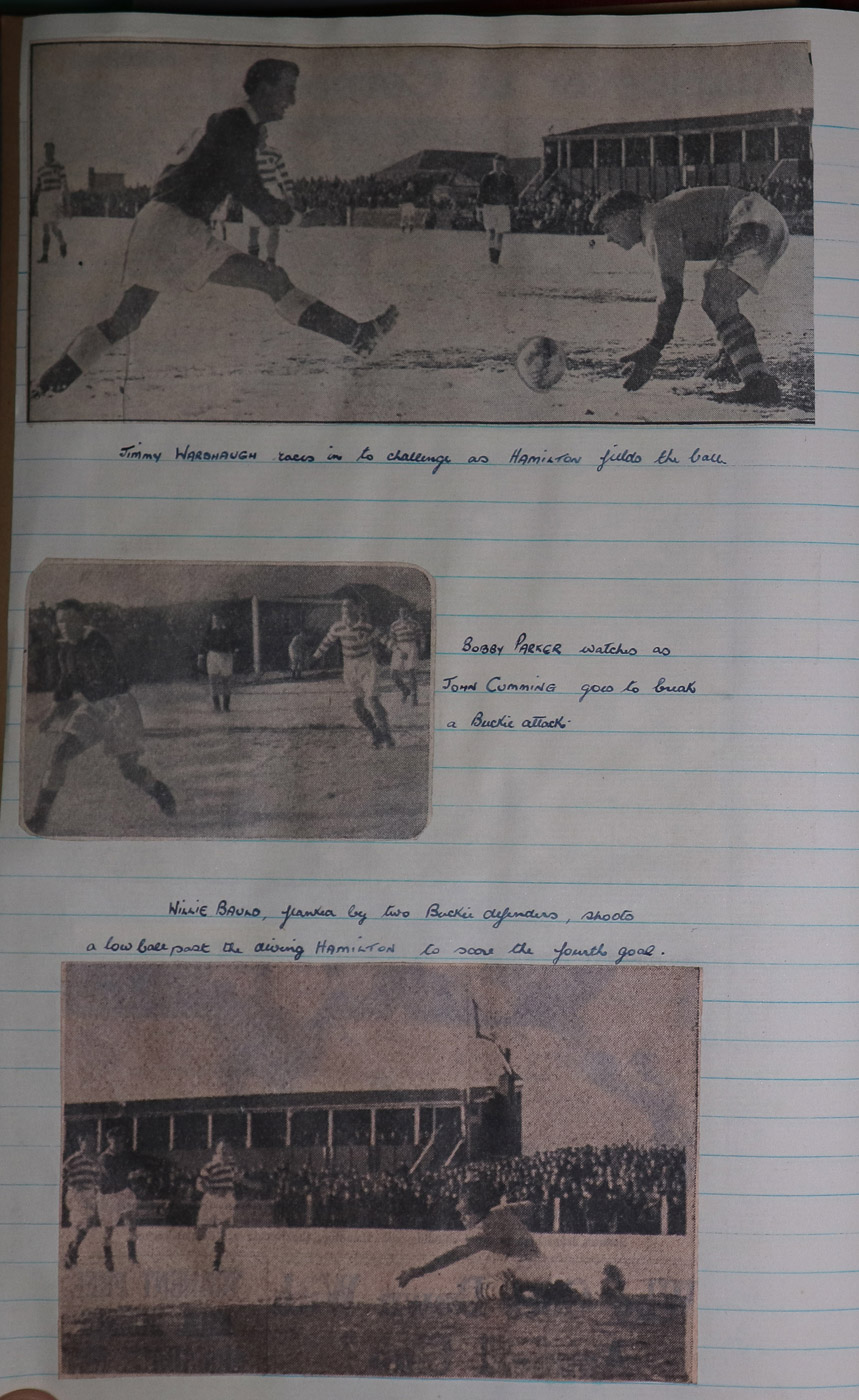 Jimmy WARDHAUGH races in to challenge as HAMILTON fields the ball
BOBBY PARKER watches as
JOHN CUMMING goes to break
a Buckie attack.
WILLIE BAULD, flanked by two Buckie defenders, shoots
a low ball past the diving HAMILTON to score the fourth goal.